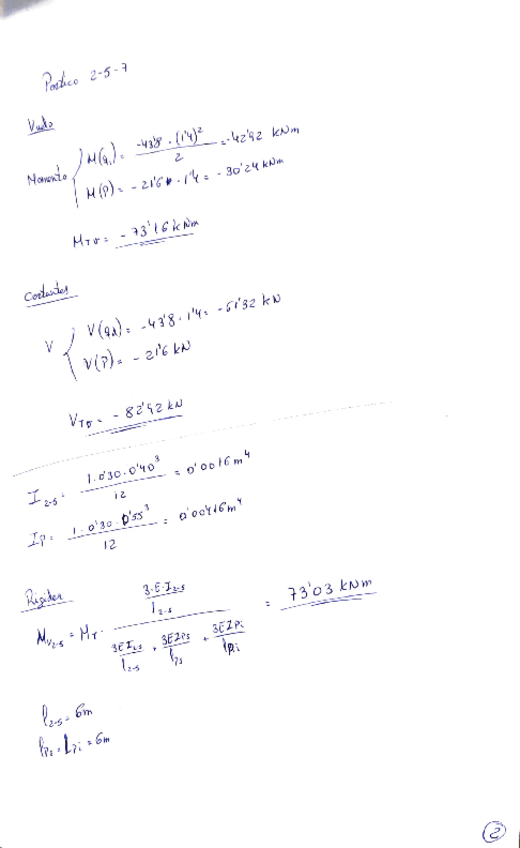 Portico 2-5-7
Vuelo
Momento { M(q1) = -43'8 · (1'4)² / 2 = -42'92 kNm
M(P) = -21'6 · 1'4 = -30'24 kNm
MTOT = -73'16 kNm
Cortantes
V { V(q1) = -43'8 · 1'4 = -61'32 kN
V(P) = -21'6 kN
VTOT = -82'92 kN
I2-5 = 1·0'30·0'40³ / 12 = 0'0016 m⁴
IP = 1·0'30·0'55³ / 12 = 0'00416 m⁴
Rigidez
Mv2-5 = MT · (3·E·I2-5 / l2-5) / (3EI2-5 / l2-5 + 3EIPs / lPs + 3EIPi / lPi) = 73'03 kNm
l2-5 = 6m
lPs = LPi = 6m
2